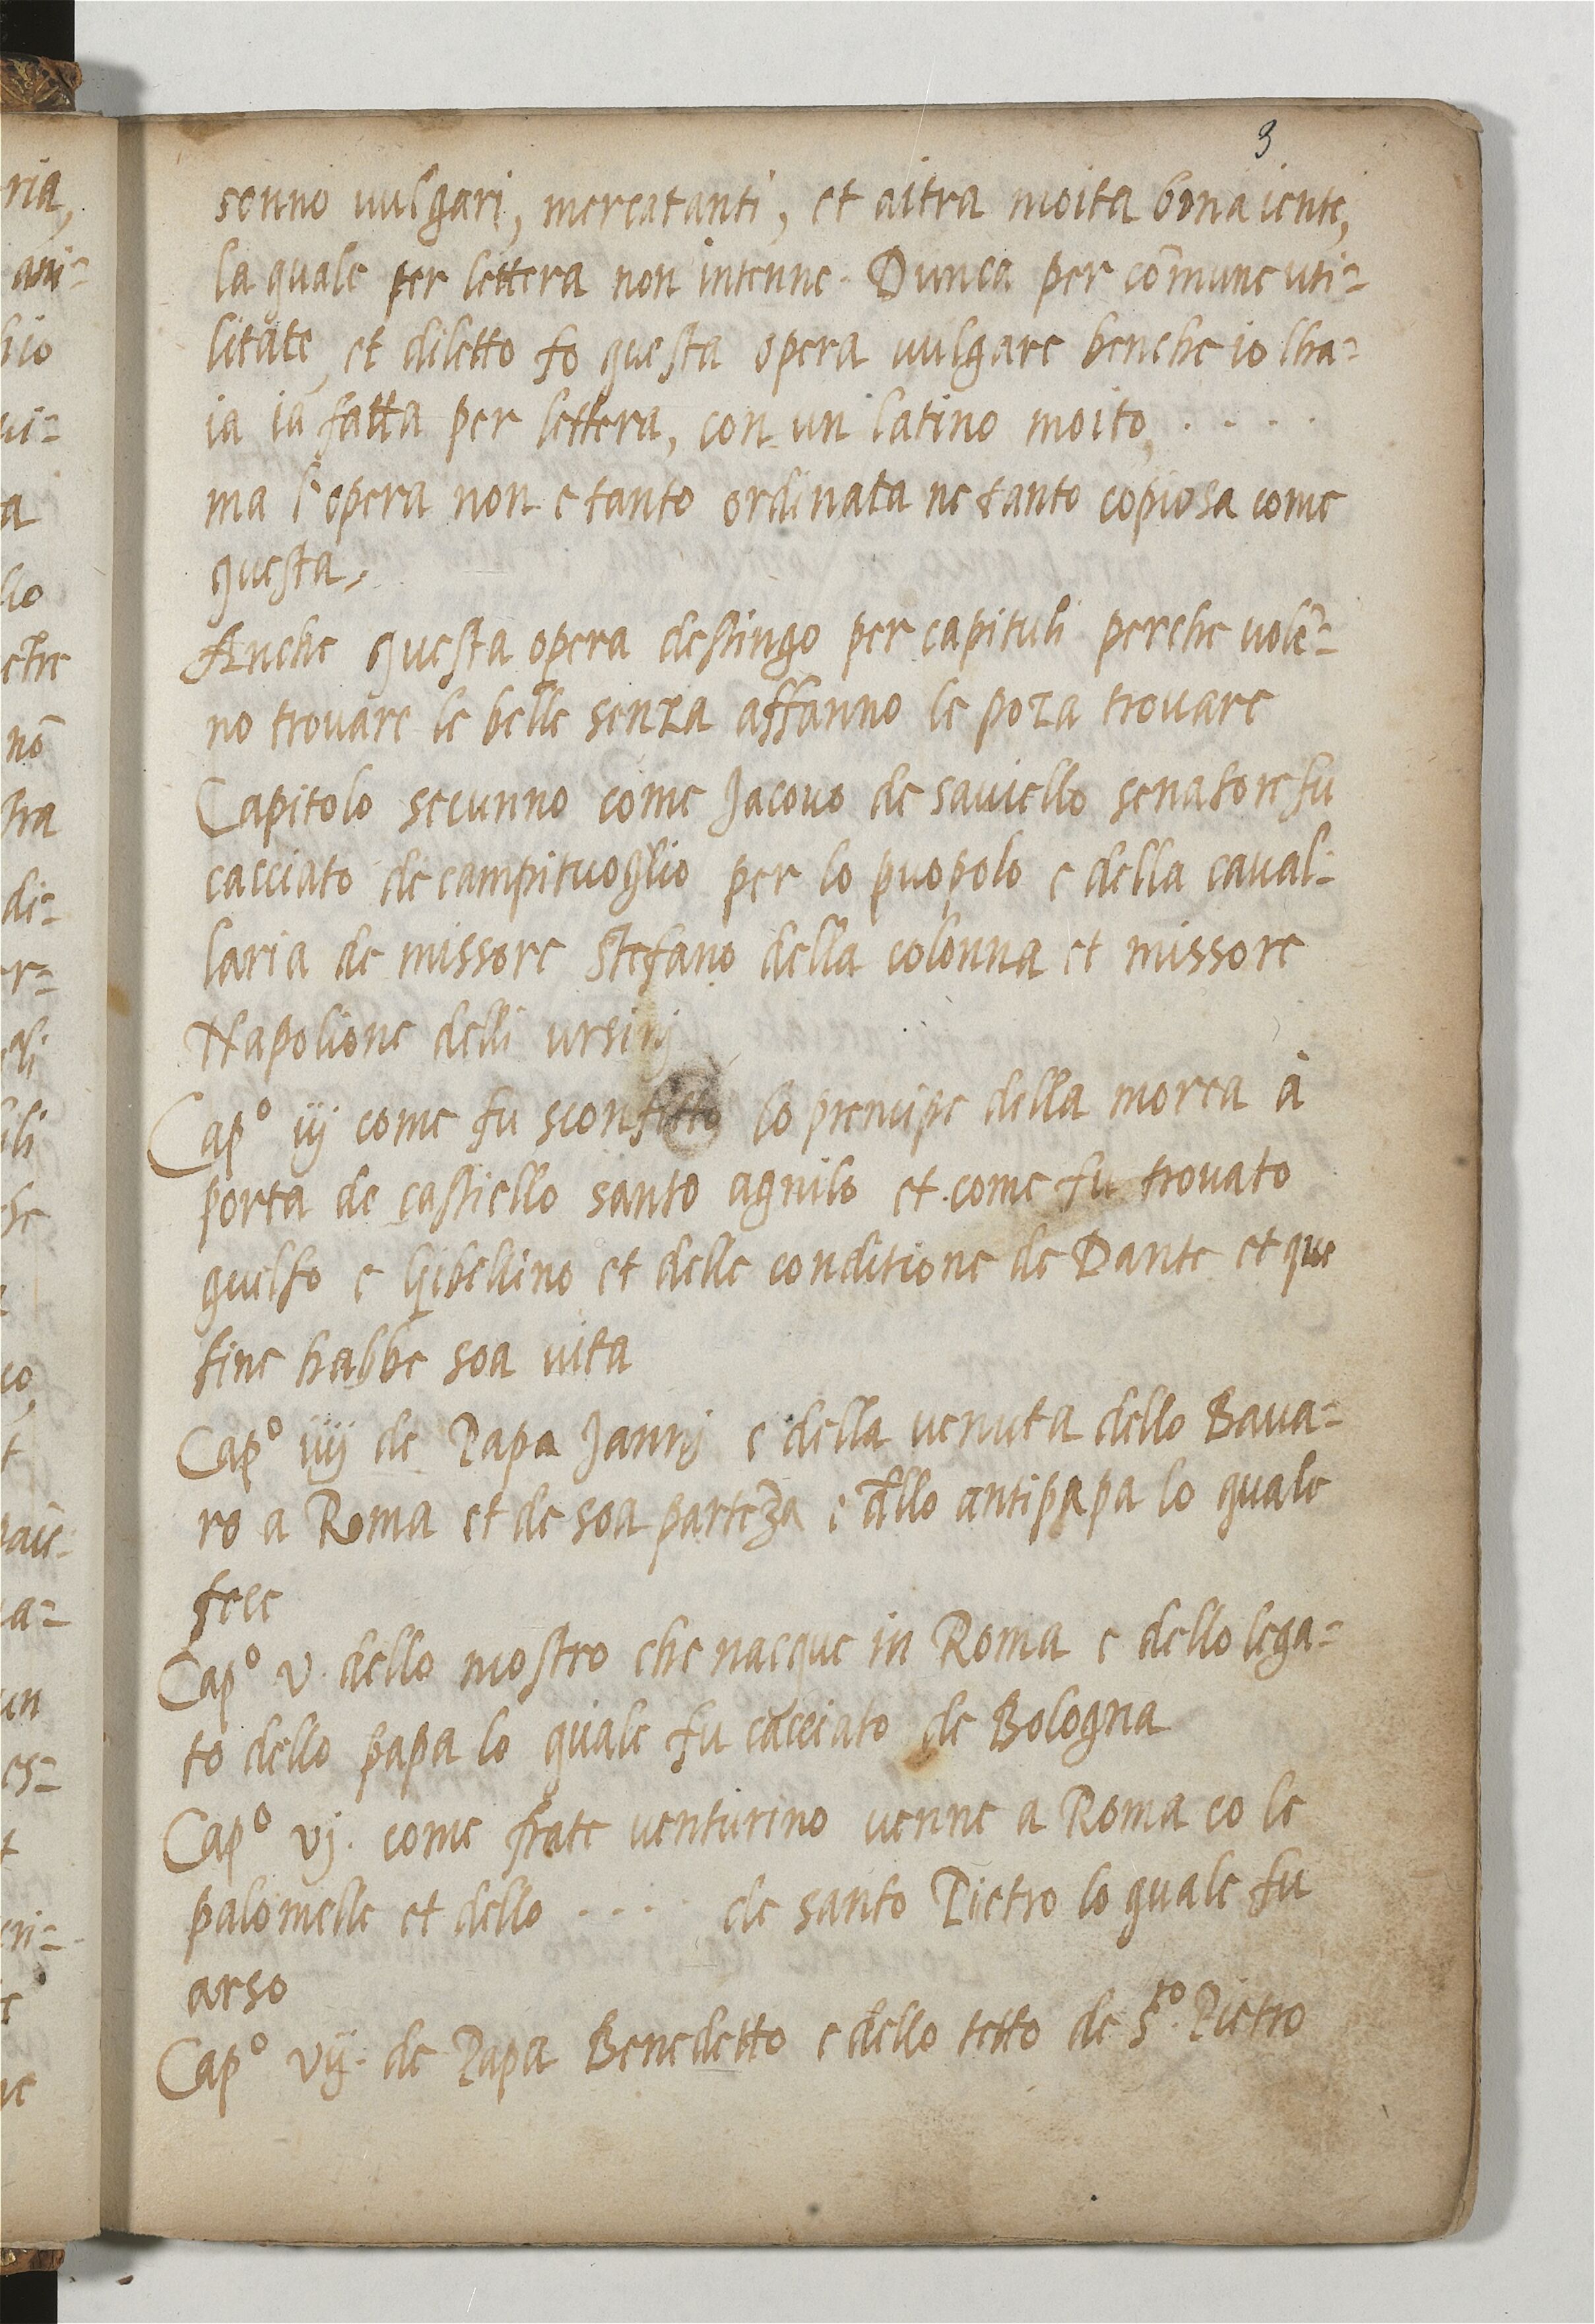 3
sonno vulgari, mercatanti, et aitra moita bona iente,
la quale per lettera non intenne. Dunca per cõmune uti=
litate, et diletto fo questa opera vulgare benche io lha=
ia ia fatta per lettera, con un latino moito, . . . .
ma l'opera non e tanto ordinata ne tanto copiosa come
questa.
Anche questa opera destingo per capituli perche volẽ=
no trovare le belle senza affanno le poza trovare
Capitolo secunno come Jacovo de saviello senatore fu
cacciato de campituoglio per lo puopolo e della caval=
laria de missore Stefano della colonna et missore
Napolione delli ursinj
Capº iij come fu sconfitto lo prencipe della morea à
porta de castiello santo agnilo et come fu trovato
guelfo e Gibellino et delle conditione de Dante et que
fine habbe soa vita
Capº iiij de Papa Janni e della venuta dello Bava=
ro a Roma et de soa partẽza e dello antipapa lo quale
fece
Capº v. dello mostro che nacque in Roma e dello lega=
to dello papa lo quale fu cacciato de Bologna
Capº vj. come frate venturino venne a Roma co le
palomelle et dello . . . . de santo Pietro lo quale fu
arso
Capº vij. de Papa Benedetto e dello tetto de S.to Pietro